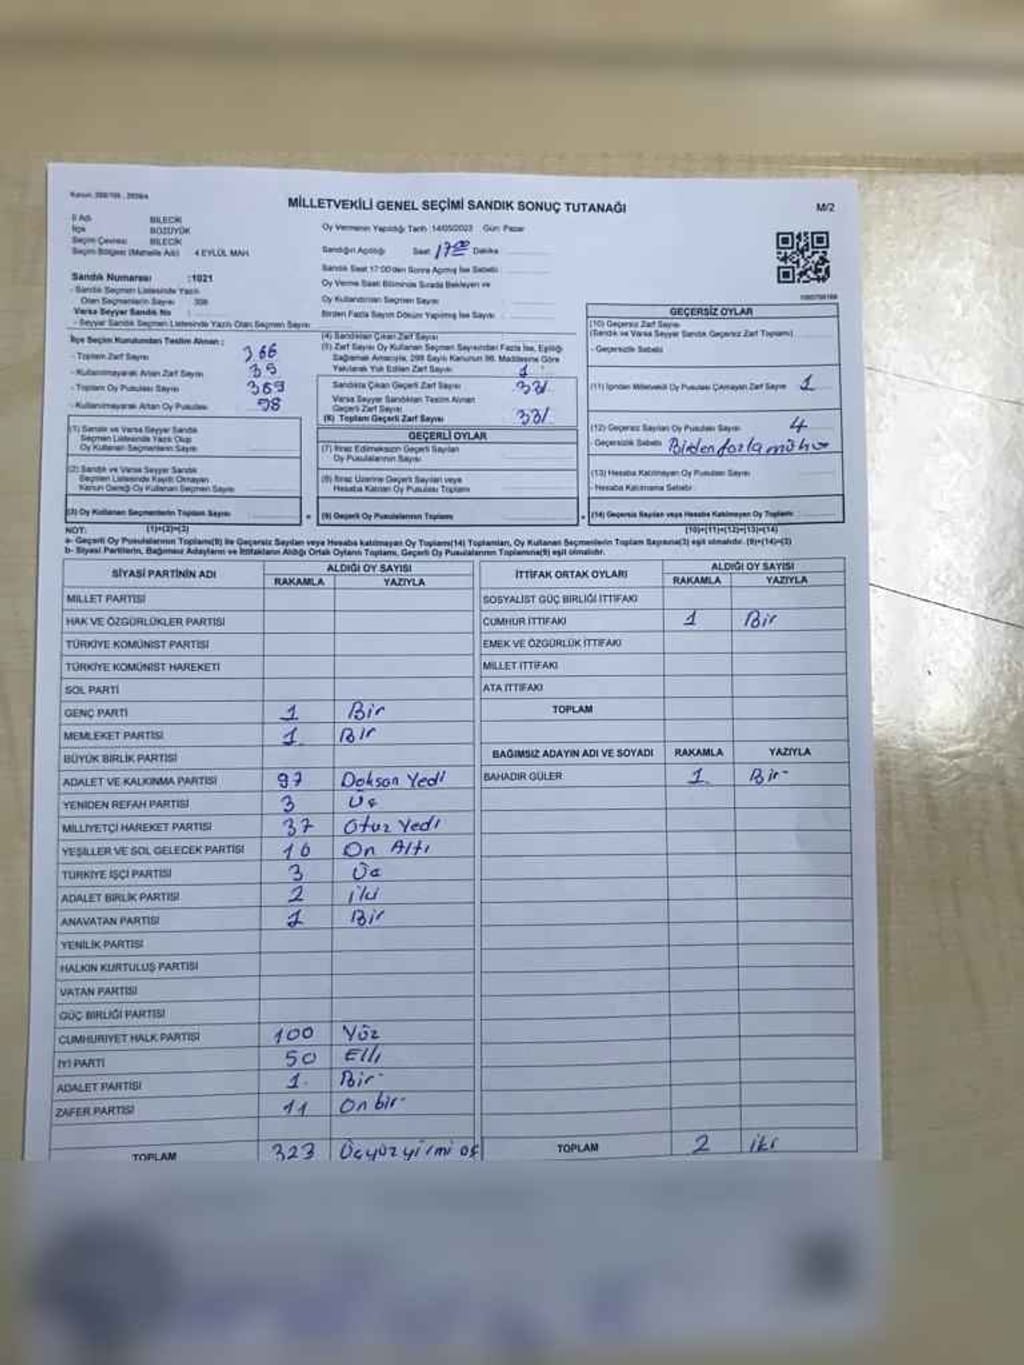 MİLLETVEKİLİ GENEL SEÇİMİ SANDIK SONUÇ TUTANAĞI
M/2
İl Adı BİLECİK
İlçe BOZÜYÜK
Seçim Çevresi BİLECİK
Seçim Bölgesi (Mahalle Adı) 4 EYLÜL MAH.
Oy Vermenin Yapıldığı Tarih 14/05/2023 Gün: Pazar
Sandığın Açıldığı Saat 17 00 Dakika
Sandık Saat 17:00'den Sonra Açılmış İse Sebebi
Oy Verme Saati Bitiminde Sırada Bekleyen ve
Oy Kullandırılan Seçmen Sayısı
Birden Fazla Sayım Döküm Yapılmış İse Sayısı
Sandık Numarası :1021
- Sandık Seçmen Listesinde Yazılı
Olan Seçmenlerin Sayısı
Varsa Seyyar Sandık No
- Seyyar Sandık Seçmen Listesinde Yazılı Olan Seçmen Sayısı
İlçe Seçim Kurulundan Teslim Alınan :
- Toplam Zarf Sayısı 366
- Kullanılmayarak Artan Zarf Sayısı 35
- Toplam Oy Pusulası Sayısı 369
- Kullanılmayarak Artan Oy Pusulası
(1) Sandık ve Varsa Seyyar Sandık
Seçmen Listesinde Yazılı Olup
Oy Kullanan Seçmenlerin Sayısı
(2) Sandık ve Varsa Seyyar Sandık
Seçmen Listesinde Kayıtlı Olmayan
Kanun Gereği Oy Kullanan Seçmen Sayısı
(3) Oy Kullanan Seçmenlerin Toplam Sayısı
(4) Sandıktan Çıkan Zarf Sayısı
(5) Zarf Sayısı Oy Kullanan Seçmen Sayısından Fazla İse, Eşitliği
Sağlamak Amacıyla, 298 Sayılı Kanunun 98. Maddesine Göre
Yakılarak Yok Edilen Zarf Sayısı 1
Sandıkta Çıkan Geçerli Zarf Sayısı 331
Varsa Seyyar Sandıktan Teslim Alınan
Geçerli Zarf Sayısı
(6) Toplam Geçerli Zarf Sayısı 331
GEÇERLİ OYLAR
(7) İtiraz Edilmeksizin Geçerli Sayılan
Oy Pusulalarının Sayısı
(8) İtiraz Üzerine Geçerli Sayılan veya
Hesaba Katılan Oy Pusulası Toplamı
(9) Geçerli Oy Pusulalarının Toplamı
GEÇERSİZ OYLAR
(10) Geçersiz Zarf Sayısı
(Sandık ve Varsa Seyyar Sandık Geçersiz Zarf Toplamı)
- Geçersizlik Sebebi
(11) İçinden Milletvekili Oy Pusulası Çıkmayan Zarf Sayısı 1
(12) Geçersiz Sayılan Oy Pusulası Sayısı 4
- Geçersizlik Sebebi Birden fazla mühür
(13) Hesaba Katılmayan Oy Pusulası Sayısı
- Hesaba Katılmama Sebebi
(14) Geçersiz Sayılan veya Hesaba Katılmayan Oy Toplamı
NOT: (1)+(2)=(3) (10)+(11)+(12)+(13)=(14)
a- Geçerli Oy Pusulalarının Toplamı(9) ile Geçersiz Sayılan veya Hesaba katılmayan Oy Toplamı(14) Toplamları, Oy Kullanan Seçmenlerin Toplam Sayısına(3) eşit olmalıdır. (9)+(14)=(3)
b- Siyasi Partilerin, Bağımsız Adayların ve İttifakların Aldığı Ortak Oyların Toplamı, Geçerli Oy Pusulalarının Toplamına(9) eşit olmalıdır.
SİYASİ PARTİNİN ADI ALDIĞI OY SAYISI
RAKAMLA YAZIYLA
MİLLET PARTİSİ
HAK VE ÖZGÜRLÜKLER PARTİSİ
TÜRKİYE KOMÜNİST PARTİSİ
TÜRKİYE KOMÜNİST HAREKETİ
SOL PARTİ
GENÇ PARTİ 1 Bir
MEMLEKET PARTİSİ 1 Bir
BÜYÜK BİRLİK PARTİSİ
ADALET VE KALKINMA PARTİSİ 97 Doksan Yedi
YENİDEN REFAH PARTİSİ 3 Üç
MİLLİYETÇİ HAREKET PARTİSİ 37 Otuz Yedi
YEŞİLLER VE SOL GELECEK PARTİSİ 16 On Altı
TÜRKİYE İŞÇİ PARTİSİ 3 Üç
ADALET BİRLİK PARTİSİ 2 iki
ANAVATAN PARTİSİ 1 Bir
YENİLİK PARTİSİ
HALKIN KURTULUŞ PARTİSİ
VATAN PARTİSİ
GÜÇ BİRLİĞİ PARTİSİ
CUMHURİYET HALK PARTİSİ 100 Yüz
İYİ PARTİ 50 Elli
ADALET PARTİSİ 1 Bir
ZAFER PARTİSİ 11 On bir
TOPLAM 323 Üçyüz yirmi üç
İTTİFAK ORTAK OYLARI ALDIĞI OY SAYISI
RAKAMLA YAZIYLA
SOSYALİST GÜÇ BİRLİĞİ İTTİFAKI
CUMHUR İTTİFAKI 1 Bir
EMEK VE ÖZGÜRLÜK İTTİFAKI
MİLLET İTTİFAKI
ATA İTTİFAKI
TOPLAM
BAĞIMSIZ ADAYIN ADI VE SOYADI RAKAMLA YAZIYLA
BAHADIR GÜLER 1 Bir
TOPLAM 2 iki